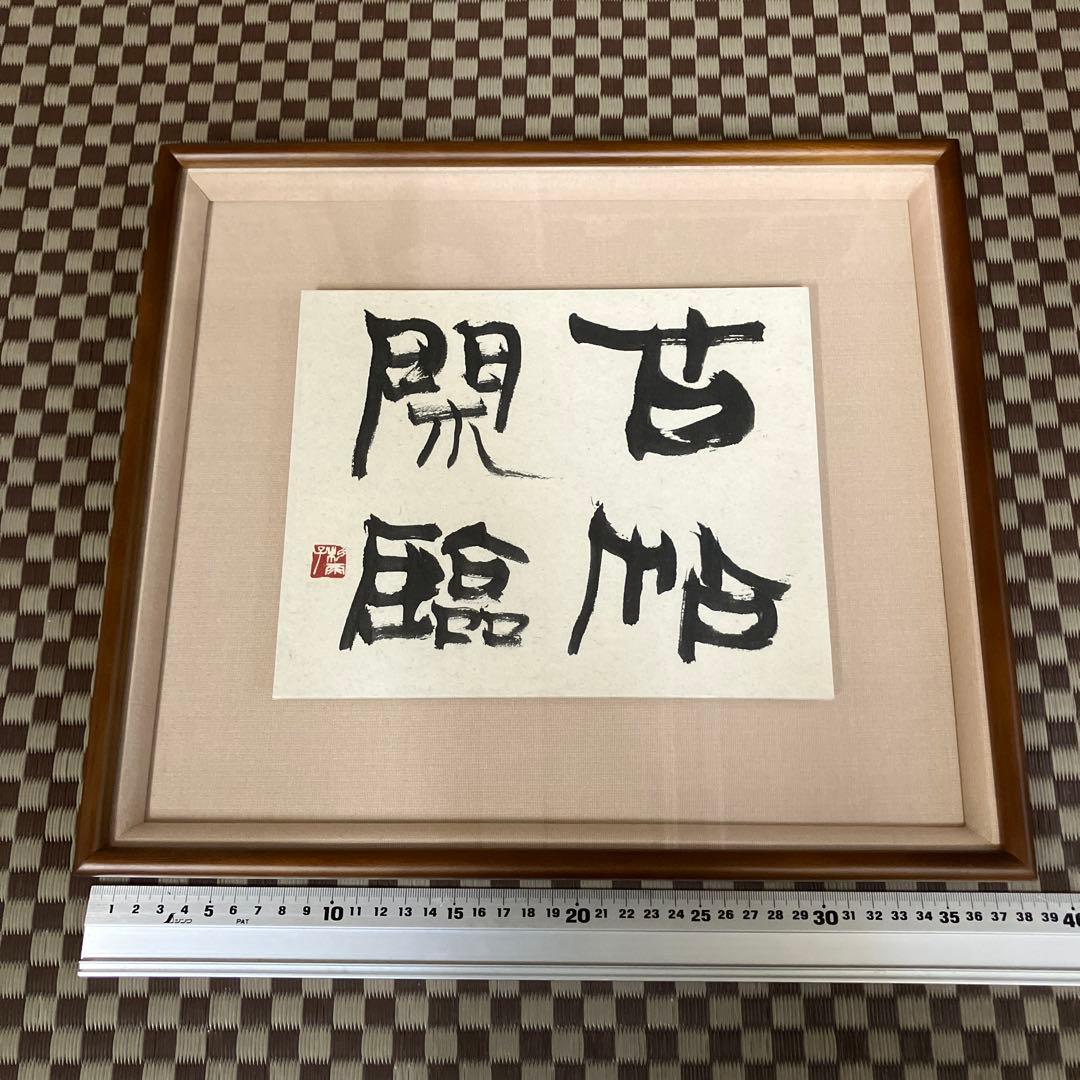 古帖
閑臨
1 2 3 4 5 6 7 8 9 10 11 12 13 14 15 16 17 18 19 20 21 22 23 24 25 26 27 28 29 30 31 32 33 34 35 36 37 38 39 40
シンワ PAT